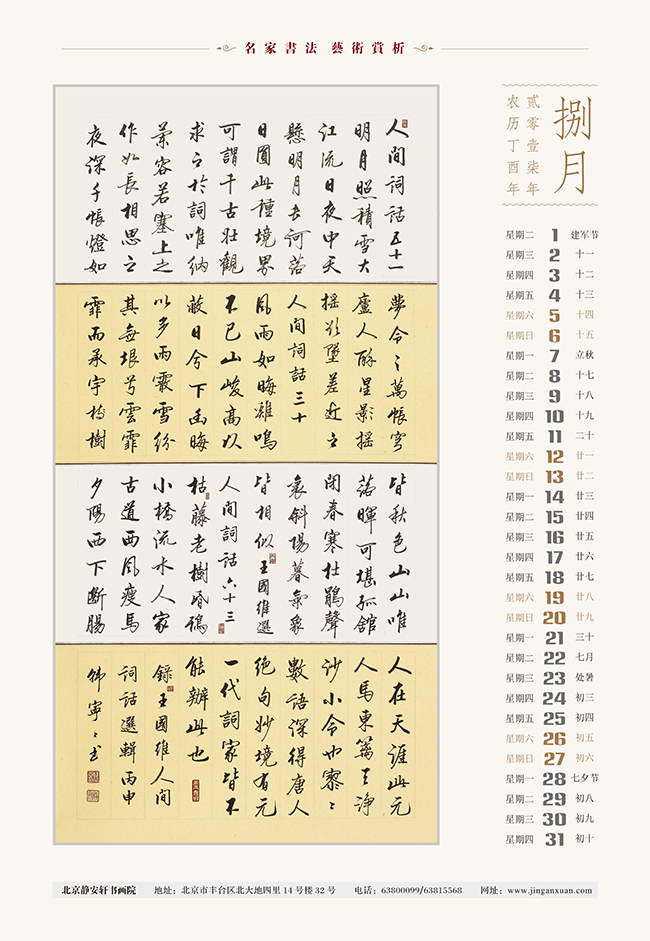 名家書法 藝術賞析
人間詞話五十一
明月照積雪大
江流日夜中天
懸明月长河落
日圓此種境界
可謂千古壯觀
求之於詞唯納
蘭容若塞上之
作如長相思之
夜深千帳燈如
夢令之萬帳穹
廬人醉星影搖
搖欲墜差近之
人間詞話三十
風雨如晦雞鳴
不已山峻高以
蔽日兮下幽晦
以多雨霰雪紛
其無垠兮雲霏
霏而承宇樹樹
皆秋色山山唯
落暉可堪孤館
閉春寒杜鵑聲
裏斜陽暮氣象
皆相似王國維選
人間詞話六十三
枯藤老樹昏鴉
小橋流水人家
古道西風瘦馬
夕陽西下斷腸
人在天涯此元
人馬東籬天淨
沙小令也寥〻
數語深得唐人
絕句妙境有元
一代詞家皆不
能辦此也
錄王國維人間
詞話選輯丙申
韓寧〻書
捌月
貳零壹柒年
农历丁酉年
星期二 1 建军节
星期三 2 十一
星期四 3 十二
星期五 4 十三
星期六 5 十四
星期日 6 十五
星期一 7 立秋
星期二 8 十七
星期三 9 十八
星期四 10 十九
星期五 11 二十
星期六 12 廿一
星期日 13 廿二
星期一 14 廿三
星期二 15 廿四
星期三 16 廿五
星期四 17 廿六
星期五 18 廿七
星期六 19 廿八
星期日 20 廿九
星期一 21 三十
星期二 22 七月
星期三 23 处暑
星期四 24 初三
星期五 25 初四
星期六 26 初五
星期日 27 初六
星期一 28 七夕节
星期二 29 初八
星期三 30 初九
星期四 31 初十
北京静安轩书画院 地址：北京市丰台区北大地四里 14 号楼 32 号 电话：63800099/63815568 网址：www.jinganxuan.com